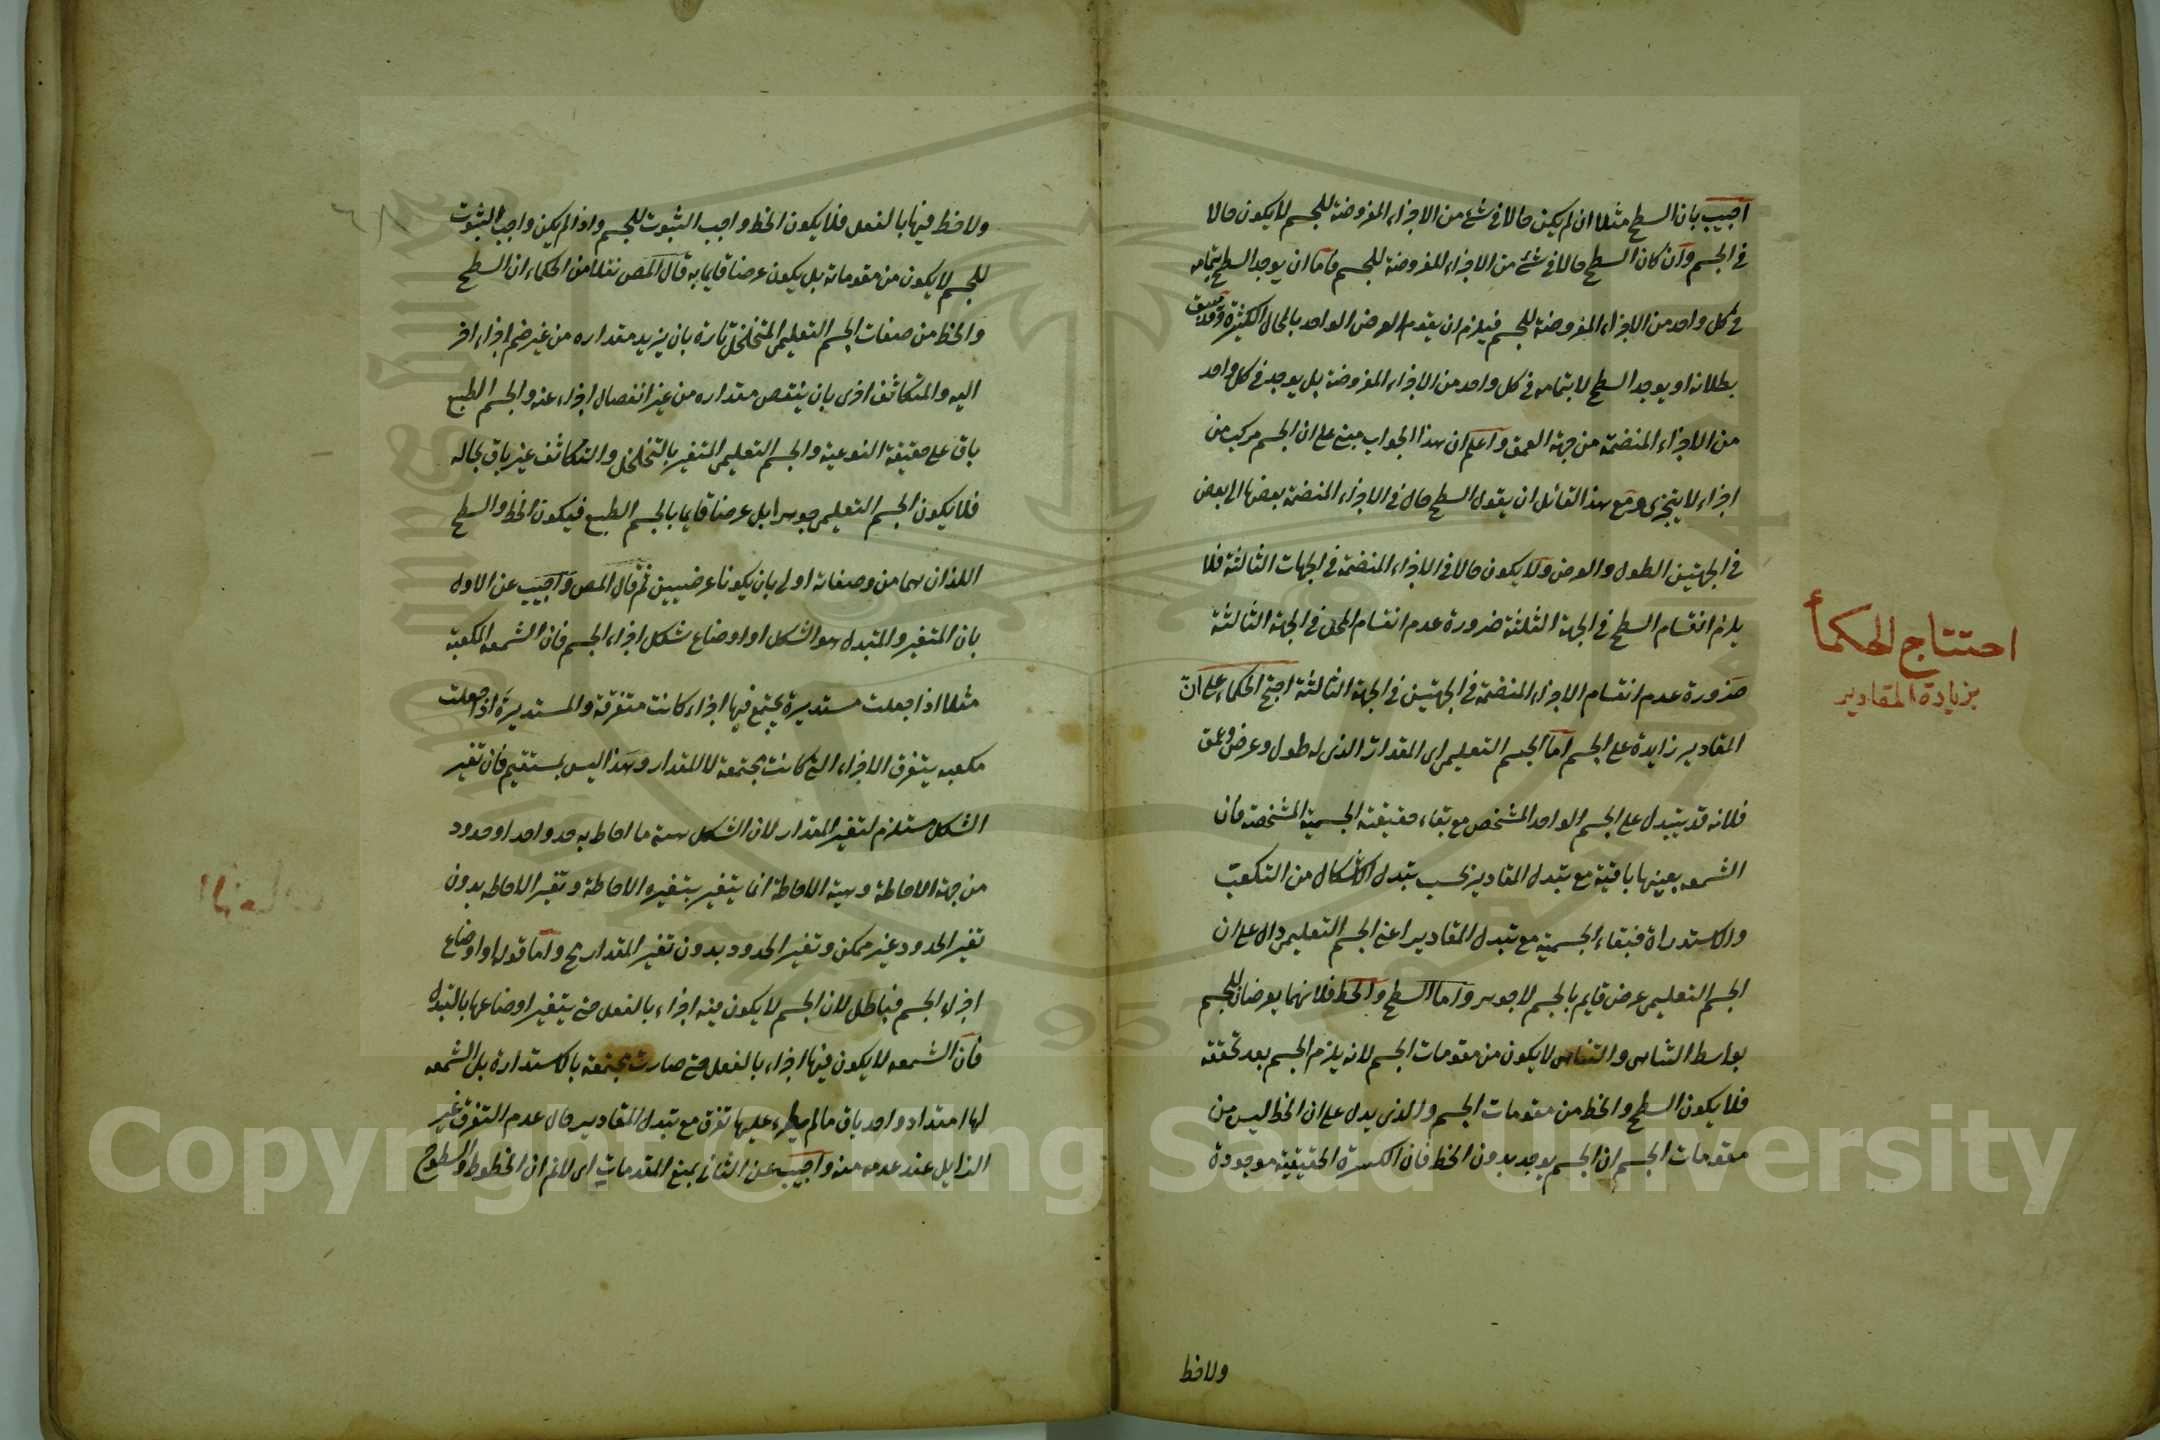 اجيب بان السطح مثلا ان لم يكن حالا فى شئ من الاجزاء المفروضة للجسم لا يكون حالا
فى الجسم وان كان السطح حالا فى شئ من الاجزاء المفروضة للجسم فاما ان يوجد السطح بتمامه
فى كل واحد من الاجزاء المفروضة للجسم فيلزم ان يقوم العرض الواحد بالمحال الكثيرة وقد سبق
بطلانه او يوجد السطح لا بتمامه فى كل واحد من الاجزاء المفروضة بل يوجد فى كل واحد
من الاجزاء المنضمة من جهة العمق واعلم ان هذا الجواب مبنى على ان الجسم مركب من
اجزاء لا يتجزى ومع هذا القائل ان يقول السطح حال فى الاجزاء المنضمة بعضها الى بعض
فى الجهتين الطول والعرض ولا يكون حالا فى الاجزاء المنضمة فى الجهات الثالثة فلا
يلزم انقسام السطح فى الجهة الثلثة ضرورة عدم انقسام المحل فى الجهة الثالثة
ضرورة عدم انقسام الاجزاء المنضمة فى الجهتين فى الجهة الثالثة احتج الحكماء على ان
المقادير زايدة على الجسم اما الجسم التعليمى اى المقدار الذى له طول وعرض وعمق
فلانه قد يتبدل على الجسم الواحد المشخص مع بقاء حقيقته الجسمية المشخصة فان
الشمعه بعينها باقية مع تبدل المقادير بحسب تبدل الاشكال من التكعيب
والاستدراة فبقاء الجسمية مع تبدل المقادير اعنى الجسم التعليمى دال على ان
الجسم التعليمى عرض قايم بالجسم لا جوهر واما السطح والخط فلانهما يعرضان للجسم
بواسط التناهى والتناهى لا يكون من مقومات الجسم لانه يلزم الجسم بعد تحققه
فلا يكون السطح والخط من مقومات الجسم والذى يدل على ان الخط ليس من
مقومات الجسم ان الجسم يوجد بدون الخط فان الكسرة الحقيقية موجودة
ولا خط
احتتاج الحكمأ
بزيادة المقادير
ولا خط فيها بالفعل فلا يكون الخط واجب الثبوت للجسم واذا لم يكن واجب الثبوت
للجسم لا يكون من مقوماته بل يكون عرضا قايما به قال المص نقلا من الحكماء ان السطح
والخط من صفات الجسم التعليمى المتخلخل تارة بان يزيد مقداره من غير ضم اجزاء اخر
اليه والمتكاثف اخرى بان ينقص مقداره من غير انفصال اجزاء عنه والجسم الطبع
باق على حقيقة النوعية والجسم التعليمى المتغير بالتخلخل والتكاثف غير باق بحاله
فلا يكون الجسم التعليمى جوهرا بل عرضا قايما بالجسم الطبع فيكون الخط والسطح
اللذان هما من وصفاته اولى بان يكونا عرضيين ثم قال المص واجيب عن الاول
بان المتغير والمتبدل هو الشكل او اوضاع شكل اجزاء الجسم فان الشمعه المكعبة
مثلا اذا جعلت مستديرة يجتمع فيها اجزاء كانت متفرقة والمستديرة اذا جعلت
مكعبه يتفرق الاجزاء التى كانت مجتمعة لا للمقدار وهذا ليس بمستقيم فان تغير
الشكل مستلزم لتغير المقدار لان الشكل هيئة ما احاط به حد واحد او حدود
من جهة الاحاطة وهيئة الاحاطة انما يتغير بتغيره الاحاطة وتغير الاحاطه بدون
تغير الحدود غير ممكن وتغير الحدود بدون تغير المقدار مح واما قوله او اوضاع
اجزاء الجسم فباطل لان الجسم لا يكون فيه اجزاء بالفعل حتى يتغير اوضاعها بالتبدل
فان الشمعه لا يكون فيها اجزاء بالفعل حتى صارت مجتمعة بالاستدارة بل الشمعه
لها امتداد واحد باق ما لم يطرء عليها تفرق مع تبدل المقادير حال عدم التفرق غير
الزايل عند عدمه منه واجيب عن الثانى بمنع المقدمات اى لا نم ان الخطوط والسطوح